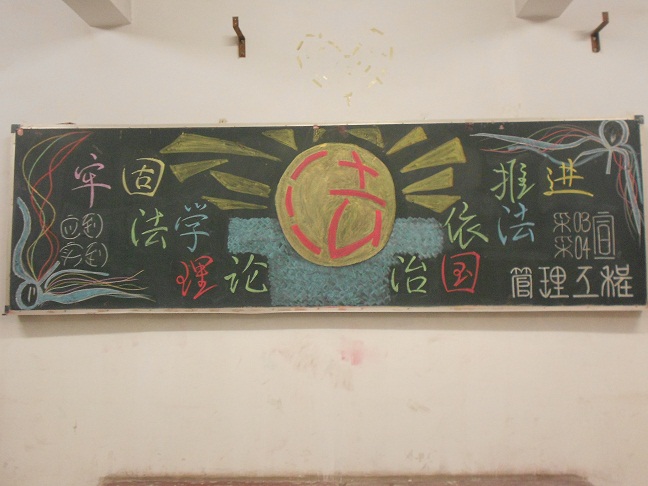 牢固
法学
理论
法
推进
依法
治国
应到
实到
采03
采04
宣
管理工程